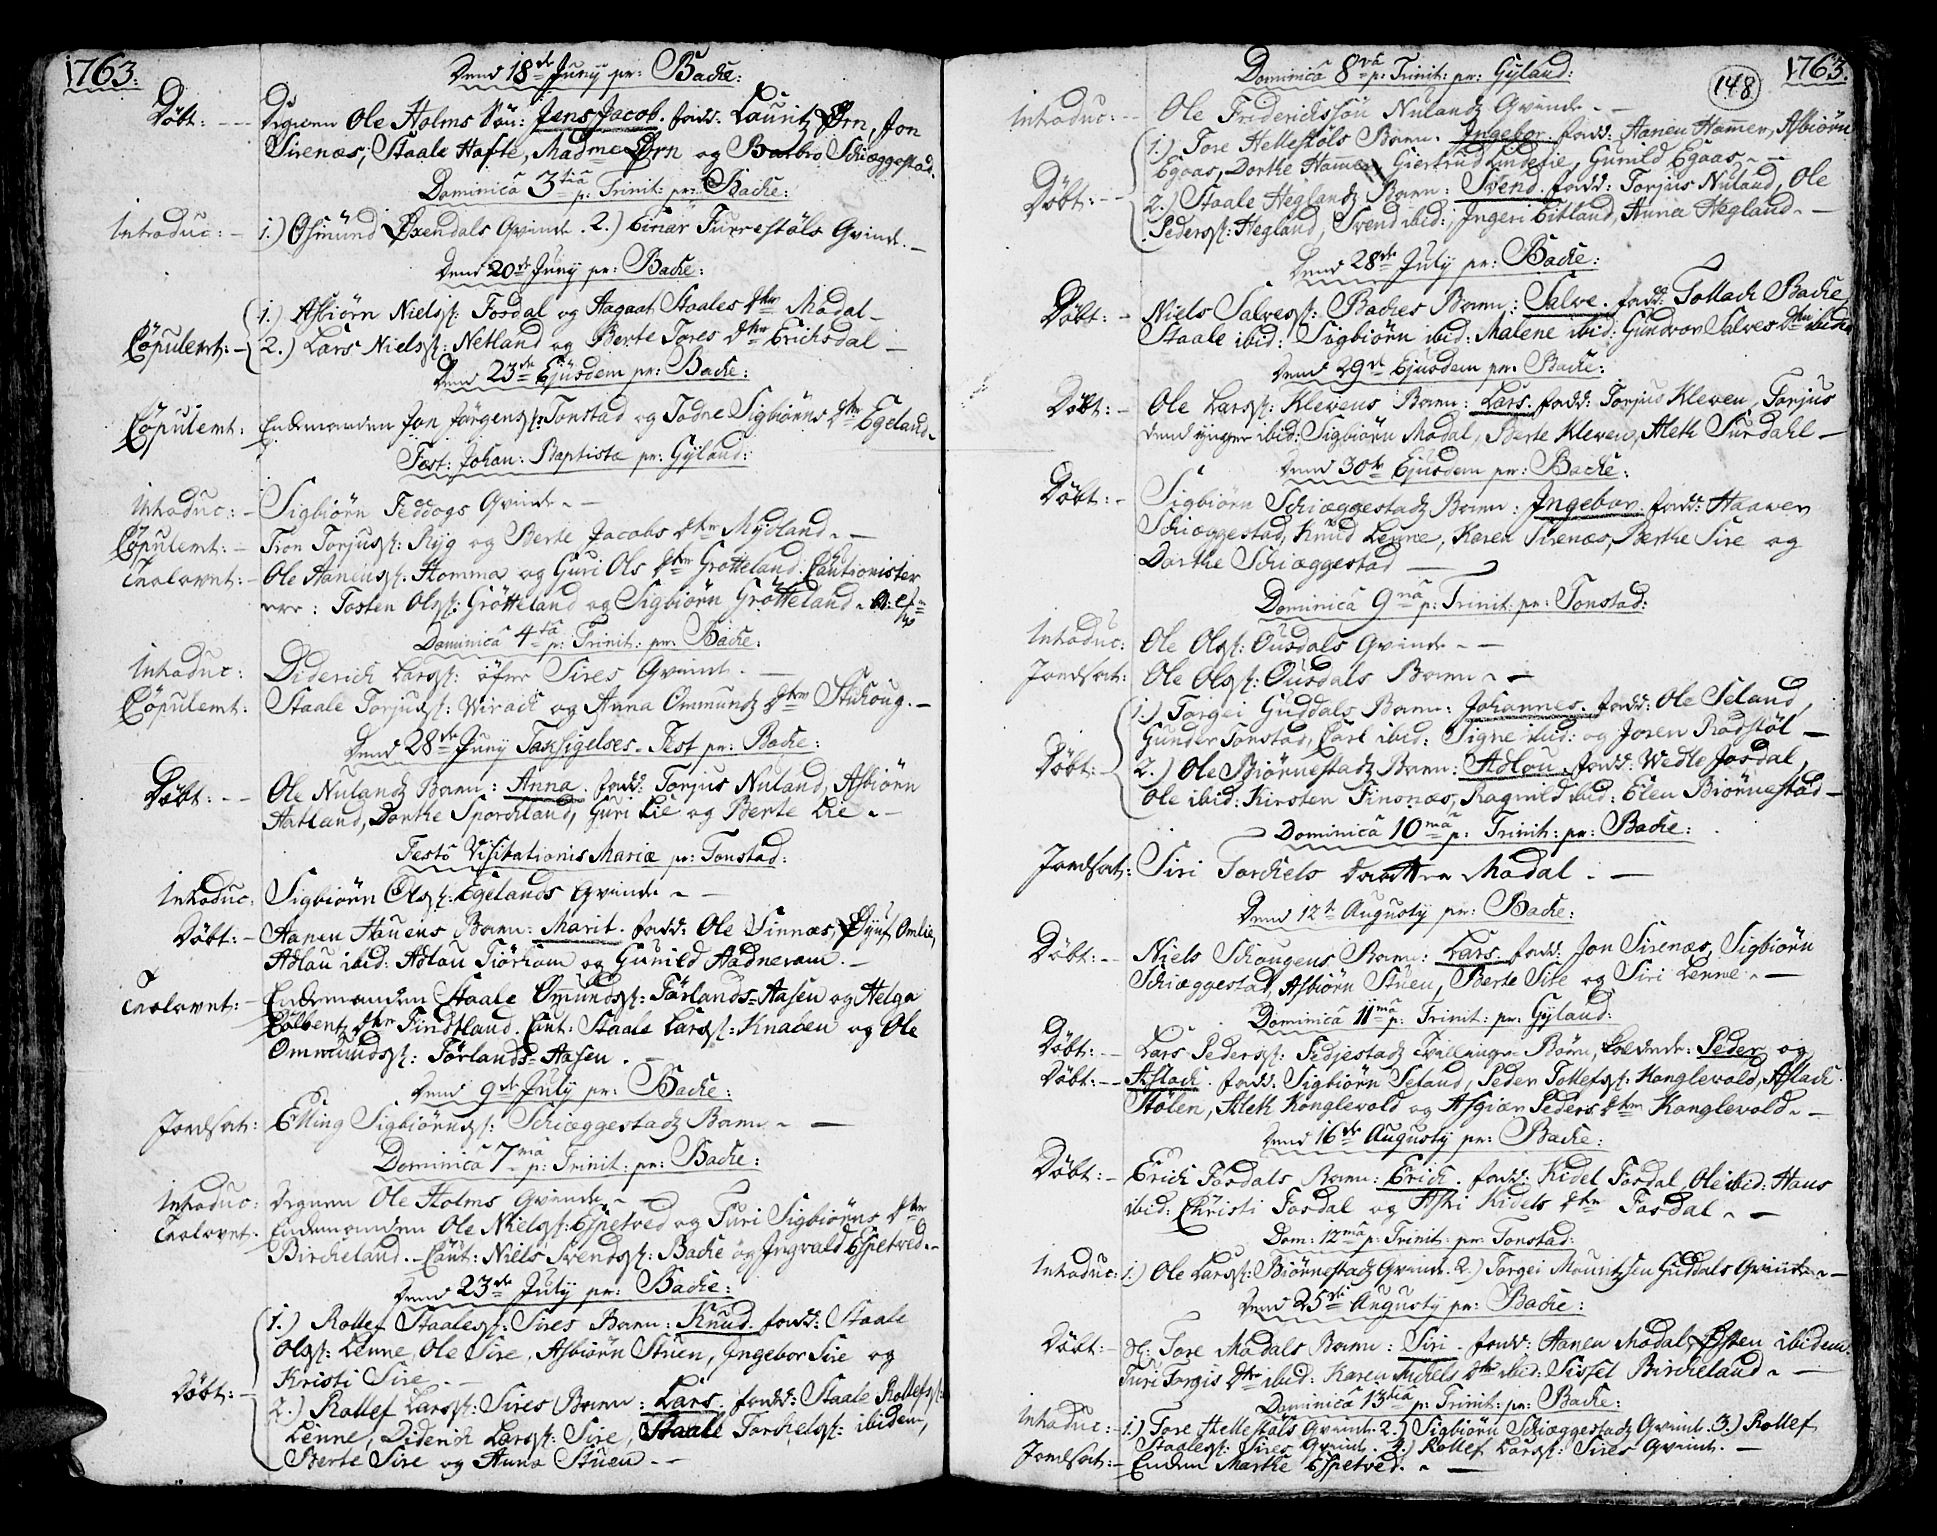 1763.
Dend 18de Juny pr: Backe:
Döbt: -- Degnen Ole Holms Sön: Jens Jacob. fadd: Lauritz Ørn, Jon
Sirenæs, Staale Hafte, Madme Ørn og Barbro Schiæggestad.
Dominica 3tia p: Trinit: pr: Backe:
Introduc: - 1.) Osmund Øxendals Qvinde. 2.) Einar Turrestöls Qvinde. -
Dend 20de Juny pr: Backe:
1.) Asbiörn Nielss: Fosdal og Aagaat Staales dtter Modal -
Copulert: - 2.) Lars Nielss: Netland og Berte Tores dtter Erichsdal -
Dend 23de Ejusdem pr: Backe:
Copulert: Enckemanden Jon Jörgenss: Tonstad og Todne Sigbiörns dtter Egeland -
Fest: Johan: Baptista pr: Gyland:
Introduc: - Sigbiörn Feddogs Qvinde. -
Copulert: - Tron Torjuss: Ryg og Berte Jacobs dtter Mydland. -
Trolovet: - Ole Aanenss: Homma og Guri Ols dtter Grötteland. Cautionister
ere: Tosten Olss: Grötteland og Sigbiörn Grötteland.
Dominica 4ta p: Trinit: pr: Backe:
Introduc: Diderich Larss: öfre Sires Qvinde. -
Copulert: Staale Torjuss: Wirack og Anna Ommundz dtter Skiboug. -
Dend 28de Juny Taksigelses-Fest pr: Backe:
Döbt: -- Ole Nulandz Barn: Anna. fadd: Torjus Nuland, Asbiörn
Aatland, Dorthe Sporckland, Guri Lie og Berte Lie. -
Festo Visitationis Mariæ pr: Tonstad:
Introduc: Sigbiörn Olss: Egelands Qvinde -
Döbt: - Aanen Hauens Barn: Marit. fadd: Ole Sinnæs, Omlie,
Adlau ibid: Adlau Tiörhom og Gunild Aadneram. -
Trolovet: - Enckemanden Staale Omundss: Förlands-Aasen og Helga
Colbentz dtter Findsland. Caut: Staale Larss: Knaben og Ole
Ommundss: Förlands-Aasen. -
Dend 9de July pr: Backe:
Jordsat: Elling Sigbiörnss: Schiæggestadz Barn. -
Dominica 7ma p: Trinit: pr: Backe:
Introduc: Degnen Ole Holms Qvinde -
Trolovet. Enckemanden Ole Nielss: Espetved og Turi Sigbiörns dtter
Birckeland. - Caut: Niels Svendss: Backe og Jngvald Espetved. -
Dend 23de July pr: Backe:
1.) Rollef Staaless: Sires Barn: Knud. fadd: Staale
Olss: Lenne, Ole Sire, Asbiörn Stuen, Jngebor Sire og
Kristi Sire. -
Döbt: - 2.) Rollef Larss: Sires Barn: Lars. fadd: Staale Rollefss:
Lenne, Diderich Larss: Sire, Staale Torchelss: ibidem,
Berte Sire og Anna Stuen. -
148
1763.
Dominica 8va p: Trinit: pr: Gyland:
Introduc: -- Ole Frederichssön Nulandz Qvinde. -
1.) Tore Hellestöls Barn. Jngebor. fadd: Aanen Hammer, Asbiörn
Egaas, Dorthe Hammer, Giertrud Lindelie, Gunild Egaas. -
Döbt: -- 2.) Staale Heglandz Barn: Svend. fadd: Torjus Nuland, Ole
Pederss: Hegland, Svend ibid:, Jngeri Eitland, Anna Hegland. -
Dend 28de July pr: Backe:
Döbt: - Niels Salvess: Backes Barn: Salve. fadd: Tollack Backe,
Staale ibid: Sigbiörn ibid: Malene ibid: Gundvor Salves dtter ibidem
Dend 29de Ejusdem pr: Backe:
Döbt: - Ole Larss: Klevens Barn: Lars. fadd: Torjus Kleven, Torjus
dend ynger ibid: Sigbiörn Modal, Berte Kleven, Aleth Surdahl -
Dend 30te Ejusdem pr: Backe:
Döbt: - Sigbiörn Schiæggestadz Barn: Jngebor. fadd: Haaver
Schiæggestad, Knud Lenne, Karen Sirenæs, Berthe Sire og
Dorthe Schiæggestad -
Dominica 9na p: Trinit: pr: Tonstad:
Introduc: Ole Olss: Ousdals Qvinde. -
Jordsat: Ole Olss: Ousdals Barn. -
1.) Torgei Guddals Barn: Johannes. fadd: Ole Seland,
Gunder Tonstad, Carl ibid: Signe ibid: og Joren Rödstöl -
Döbt: - 2.) Ole Biörnestadz Barn: Adlou. fadd: Wedle Josdal,
Ole ibid: Kirsten Finsnæs, Ragnild ibid: Elen Biörnestad -
Dominica 10ma p: Trinit: pr: Backe:
Jordsat: Siri Torckels daatter Modal. -
Dend 12te Augusty pr: Backe:
Döbt: -- Niels Schougens Barn: Lars. fadd: Jon Sirenæs, Sigbiörn
Schiæggestad, Asbiörn Stuen, Berte Sire og Siri Lenne. -
Dominica 11ma p: Trinit: pr: Gyland:
Döbt: -- Lars Pederss: Sedjestadz Tvillinge-Börn, kaldede: Peder og
Döbt: -- Aslack. fadd: Sigbiörn Seland, Peder Tollefss: Konglevold, Aslack
Stölen, Aleth Konglevold og Asgier Peders dtter Konglevold. -
Dend 16de Augusty pr: Backe:
Döbt: - Erich Fosdals Barn: Erich. fadd: Kidel Fosdal, Ole ibid: Hans
ibid: Christi Fosdal og Aski Kidels dtter Fosdal. -
Dom: 12ma p: Trinit: pr: Tonstad:
Introduc: 1.) Ole Larss: Biörnestadz Qvinde. 2.) Torgei Mouritzsen Guddals Qvinde. -
Dend 25de Augusty pr: Backe:
Döbt: - Tore Modals Barn: Siri. fadd: Aanen Modal, Østen ibidem.
Turi Torgis dtter ibid: Karen Michels dtter ibid: Sissel Birckeland. -
Dominica 13tia p: Trinit: pr: Backe:
Introduc: - 1.) Tore Hellestöls Qvinde. 2.) Sigbiörn Schiæggestadz Qvinde. 3.) Rollef
Staaless: Sires Qvinde. 4.) Rollef Larss: Sires Qvinde. -
Jordsat: - Encken Marthe Espetved. -